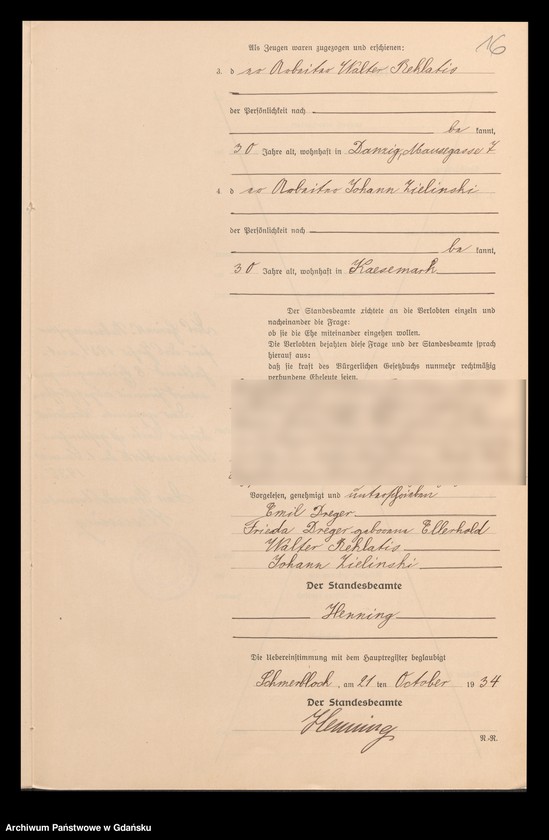 16
Als Zeugen waren zugezogen und erschienen:
3. der Arbeiter Walter Rehlatis
der Persönlichkeit nach
bekannt,
30 Jahre alt, wohnhaft in Danzig, Mausegasse 7
4 der Arbeiter Johann Zielinski
der Persönlichkeit nach
bekannt,
30 Jahre alt, wohnhaft in Kaesemark
Der Standesbeamte richtete an die Verlobten einzeln und
nacheinander die Frage:
ob sie die Ehe miteinander eingehen wollen.
Die Verlobten bejahten diese Frage und der Standesbeamte sprach
hierauf aus:
daß sie kraft des Bürgerlichen Gesetzbuchs nunmehr rechtmäßig
verbundene Eheleute seien.
Vorgelesen, genehmigt und unterschrieben
Emil Dreger
Frieda Dreger geborene Ellerhold
Walter Rehlatis
Johann Zielinski
Der Standesbeamte
Henning
Die Uebereinstimmung mit dem Hauptregister beglaubigt
Schmerblock, am 21 ten October 1934
Der Standesbeamte
Henning
N.-R.
Archiwum Państwowe w Gdańsku